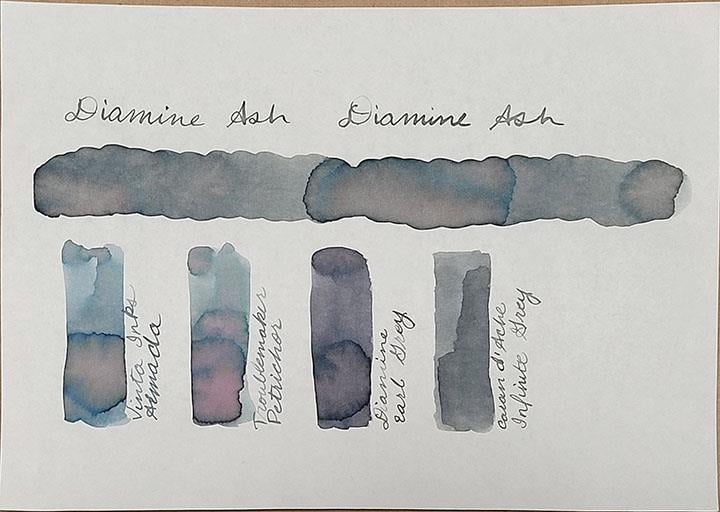 Diamine Ash Diamine Ash
Vinta Inks
Armada
Troublemaker
Petrichor
Diamine
Earl Grey
Caran d'Ache
Infinite Grey